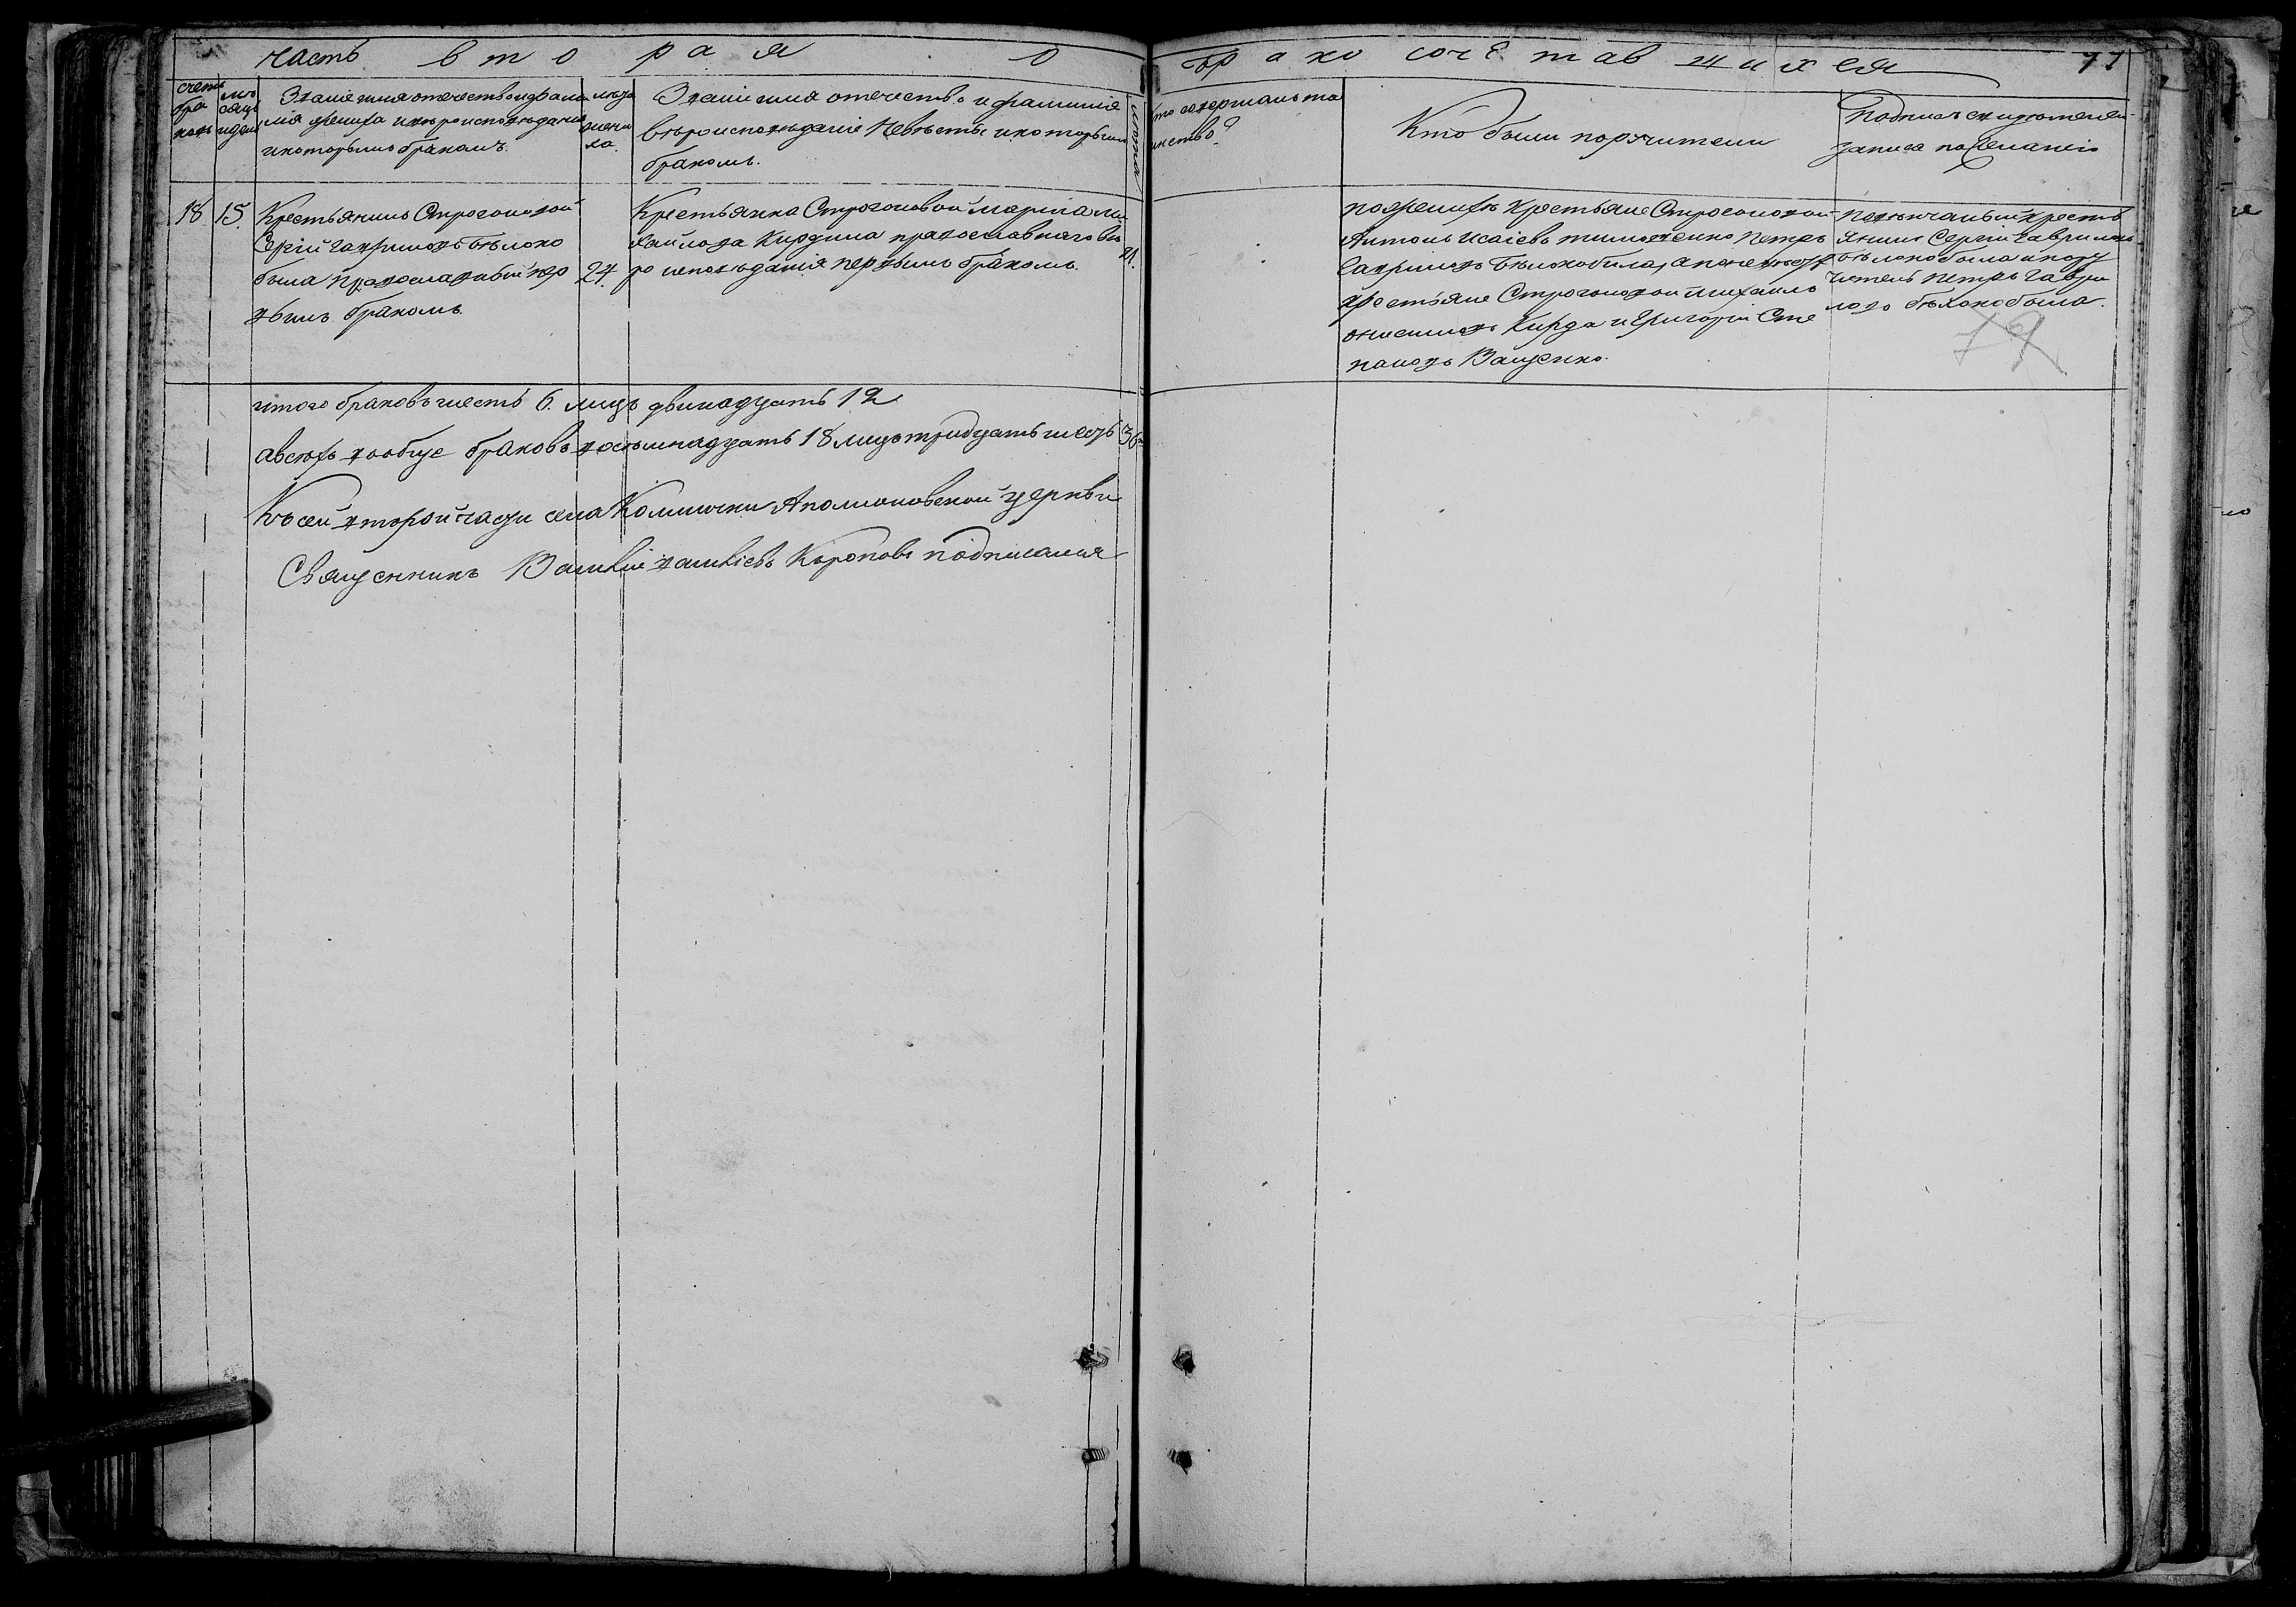 часть вторая о бракосочетавшихся 77
счетъ браковъ
мѣсяцъ и день
Званіе имя отечество и фами
лія жениха и вѣроисповѣданія
и которымъ бракомъ.
лѣта жени
ха.
Званіе имя отечество и фамилія
вѣроисповѣданіе Невѣсты и которымъ
бракомъ.
кто совершалъ та
инство?
Кто были поручители
Подпись свидѣтелей
записа по желанію
18 15. Крестьянинъ Строгоновой
Сергій Гавриловъ Бѣлоко
была православный пер
вымъ бракомъ.
24.
Крестьянка Строгоновой марія ми
хайлова Кирдина православнаго вѣ
ро исповѣданія первымъ бракомъ.
21.
по женихѣ Крестьяне Строгоновой
Антонъ Исаіевъ тимошенко Петръ
Гавриловъ Бѣлокобыла, а по невѣстѣ
крестьяне Строгоновой михаилъ
онисимовъ Кирда и Григорій Сте
пановъ Ващенко.
повѣнчаный кресть
янинъ Сергій Гавриловъ
бѣлокобыла и пору
читель петръ гаври
ловъ бѣлокобыла.
итого браковъ шесть 6. лицъ двинадцать 12
а всехъ вообще браковъ восьмнадцать 18 лицъ тридцать шесть 36
Къ сей второй части села Комлички Аполоновской церкви
Священникъ Василій василіевъ Короповъ подписался